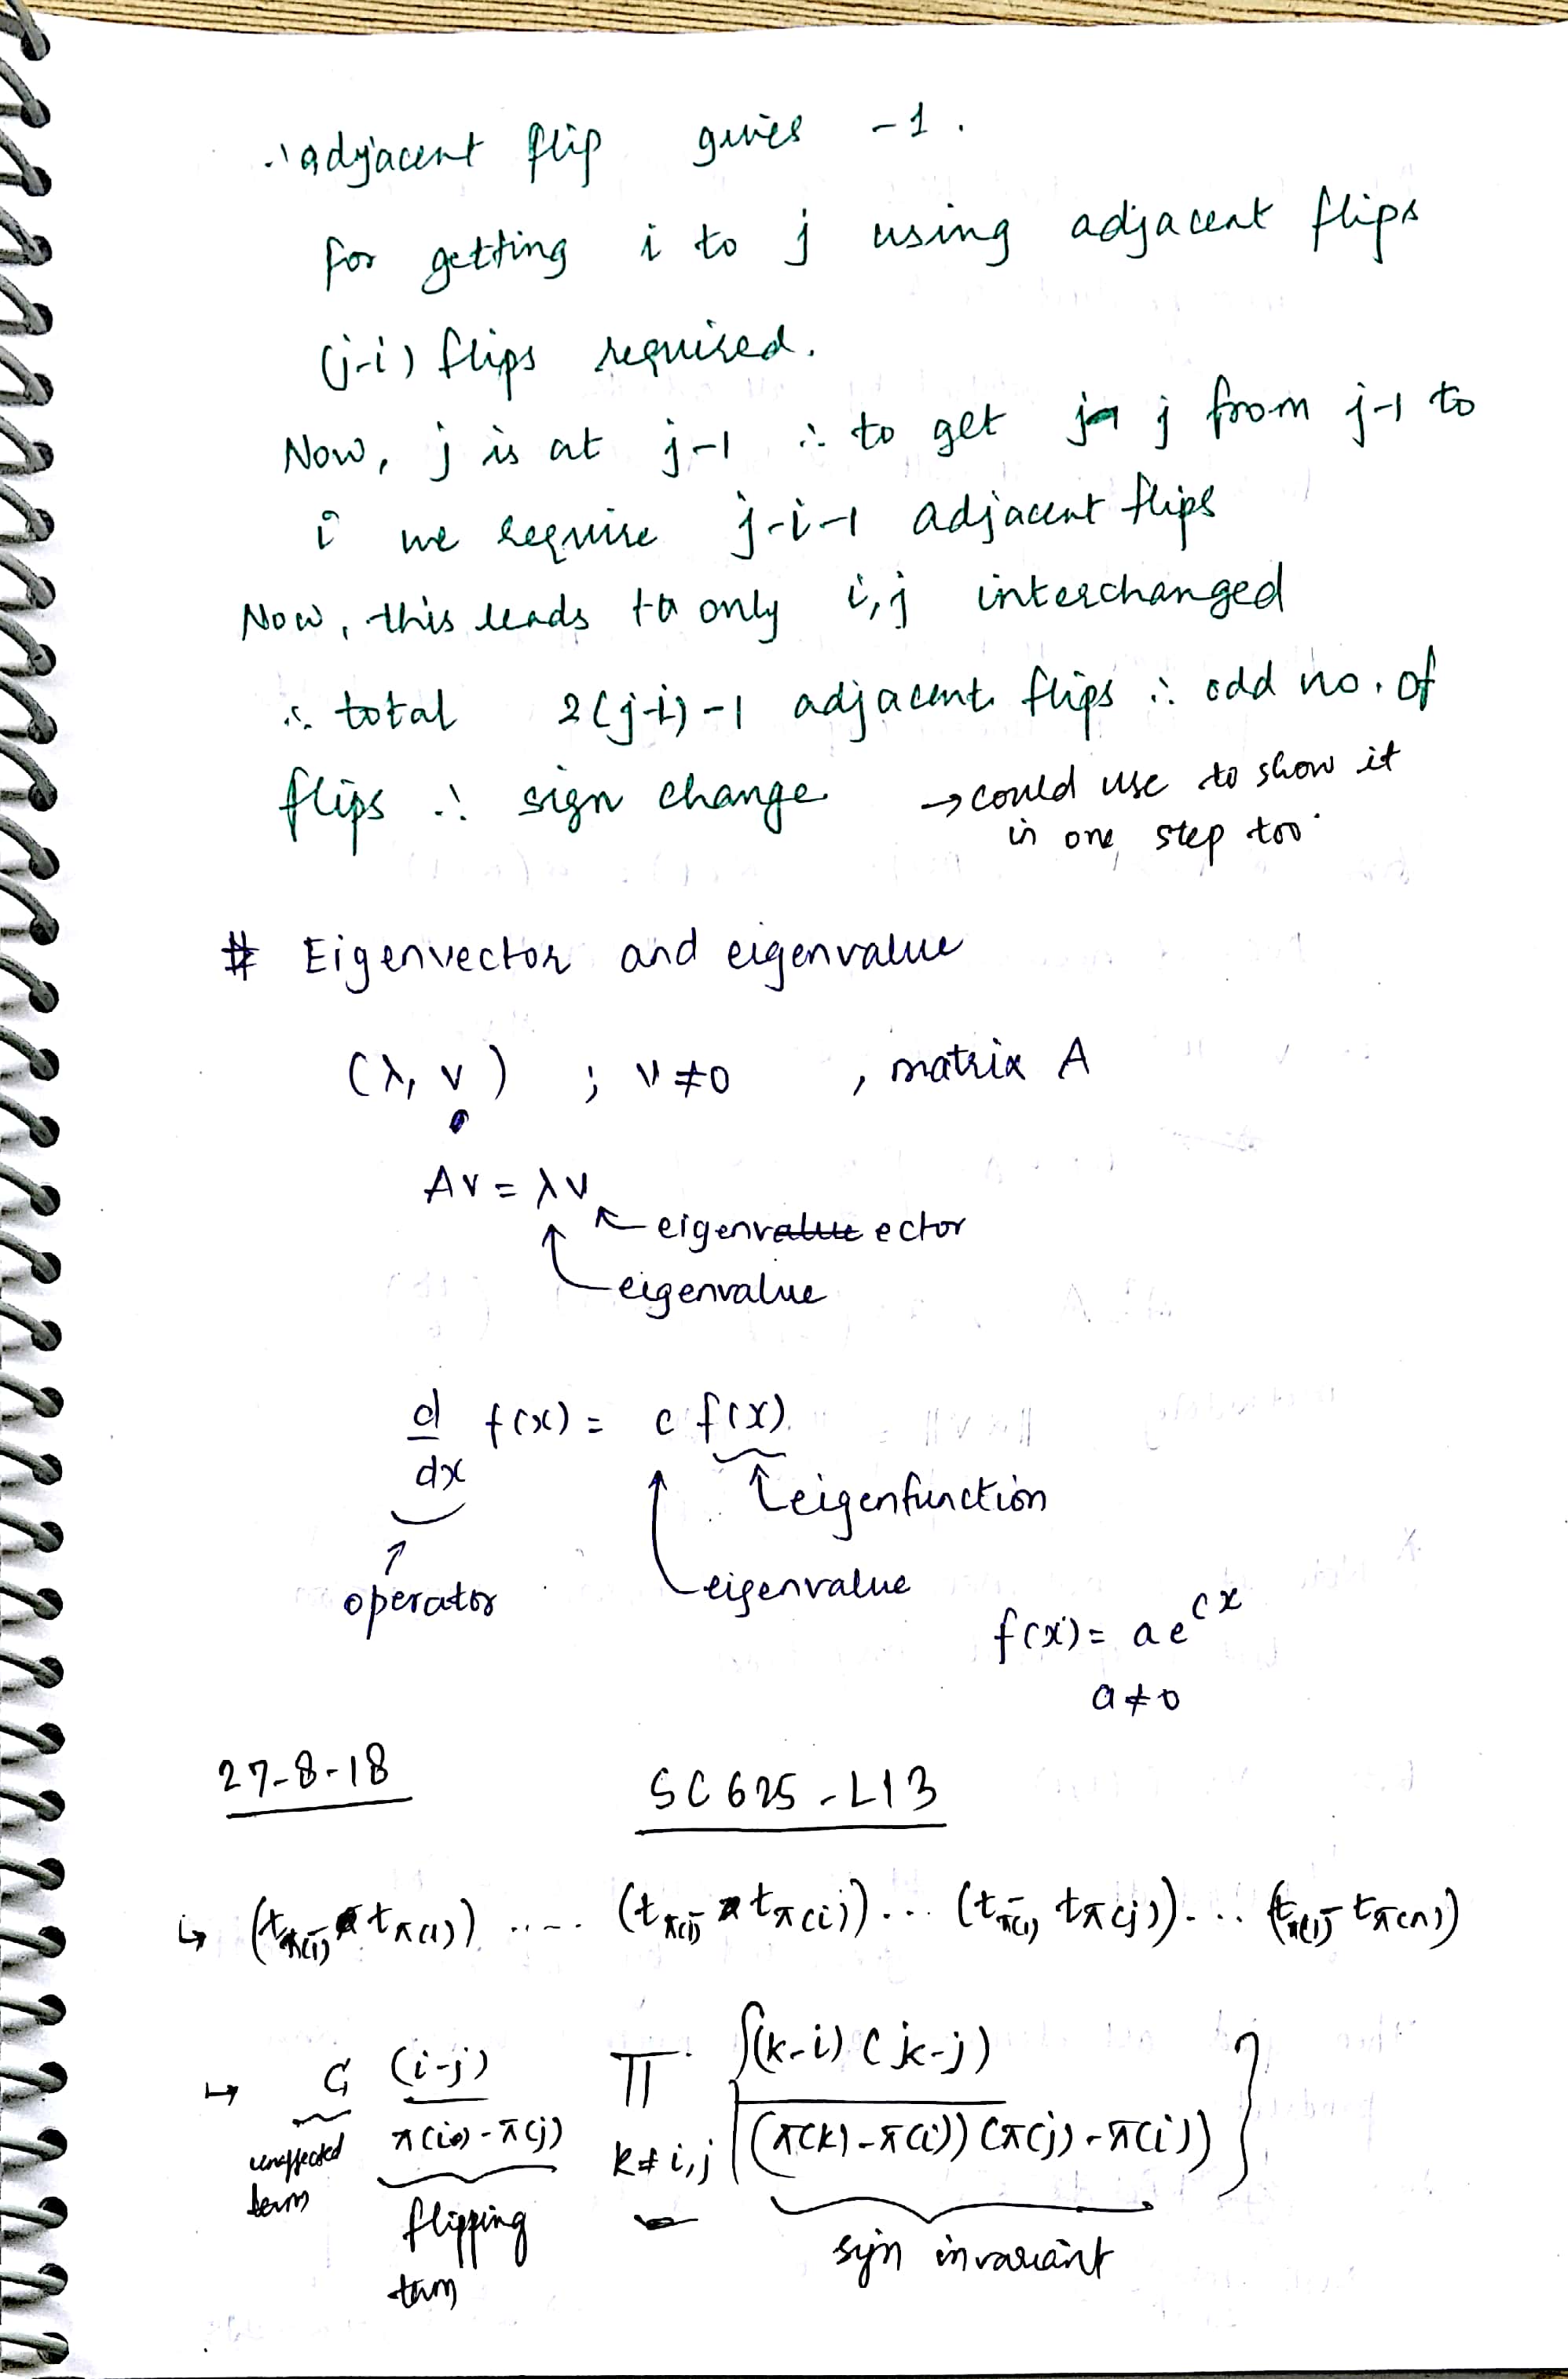 ∴ adjacent flip gives -1.
for getting i to j using adjacent flips
(j-i) flips required.
Now, j is at j-1 ∴ to get j from j-1 to
i we require j-i-1 adjacent flips
Now, this leads to only i,j interchanged
∴ total 2(j-i)-1 adjacent flips ∴ odd no. of
flips ∴ sign change → could use to show it
in one step too.
# Eigenvector and eigenvalue
(λ, v) ; v≠0 , matrix A
Av = λv
eigenvector
eigenvalue
d/dx f(x) = c f(x)
eigenfunction
operator
eigenvalue
f(x) = a e^{cx}
a≠0
27-8-18 SC625-L13
↳ (t_{π(1)} t_{π(1)}) ..... (t_{π(i)} t_{π(i)}) ... (t_{π(j)} t_{π(j)}) ... t_{π(n)})
↳ G (i-j)/(π(i)-π(j)) Π_{k≠i,j} {(k-i)(k-j)/(π(k)-π(i))(π(j)-π(i))}
unaffected term
flipping term
sign invariant